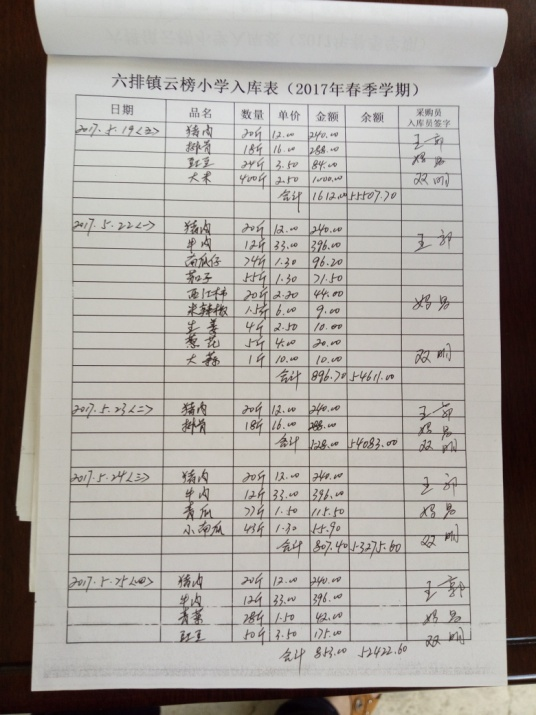 六排镇云榜小学入库表（2017年春季学期）
日期 品名 数量 单价 金额 余额 采购员 入库员签字
2017.5.19<五> 猪肉 20斤 12.00 240.00
排骨 18斤 16.00 288.00
豇豆 24斤 3.50 84.00
大米 400斤 2.50 1000.00 双明
合计 1612.00 55507.70
2017.5.22<一> 猪肉 20斤 12.00 240.00
牛肉 12斤 33.00 396.00
南瓜仔 74斤 1.30 96.20
茄子 55斤 1.30 71.50
西红柿 20斤 2.20 44.00
米辣椒 1.5斤 6.00 9.00
生姜 4斤 2.50 10.00
葱花 5斤 4.00 20.00
大蒜 1斤 10.00 10.00 双明
合计 896.70 54611.00
2017.5.23<二> 猪肉 20斤 12.00 240.00
排骨 18斤 16.00 288.00
合计 528.00 54083.00 双明
2017.5.24<三> 猪肉 20斤 12.00 240.00
牛肉 12斤 33.00 396.00
青瓜 77斤 1.50 115.50
小南瓜 43斤 1.30 55.90
合计 807.40 53275.60 双明
2017.5.25<四> 猪肉 20斤 12.00 240.00
牛肉 12斤 33.00 396.00
青菜 28斤 1.50 42.00
豇豆 50斤 3.50 175.00 双明
合计 853.00 52422.60